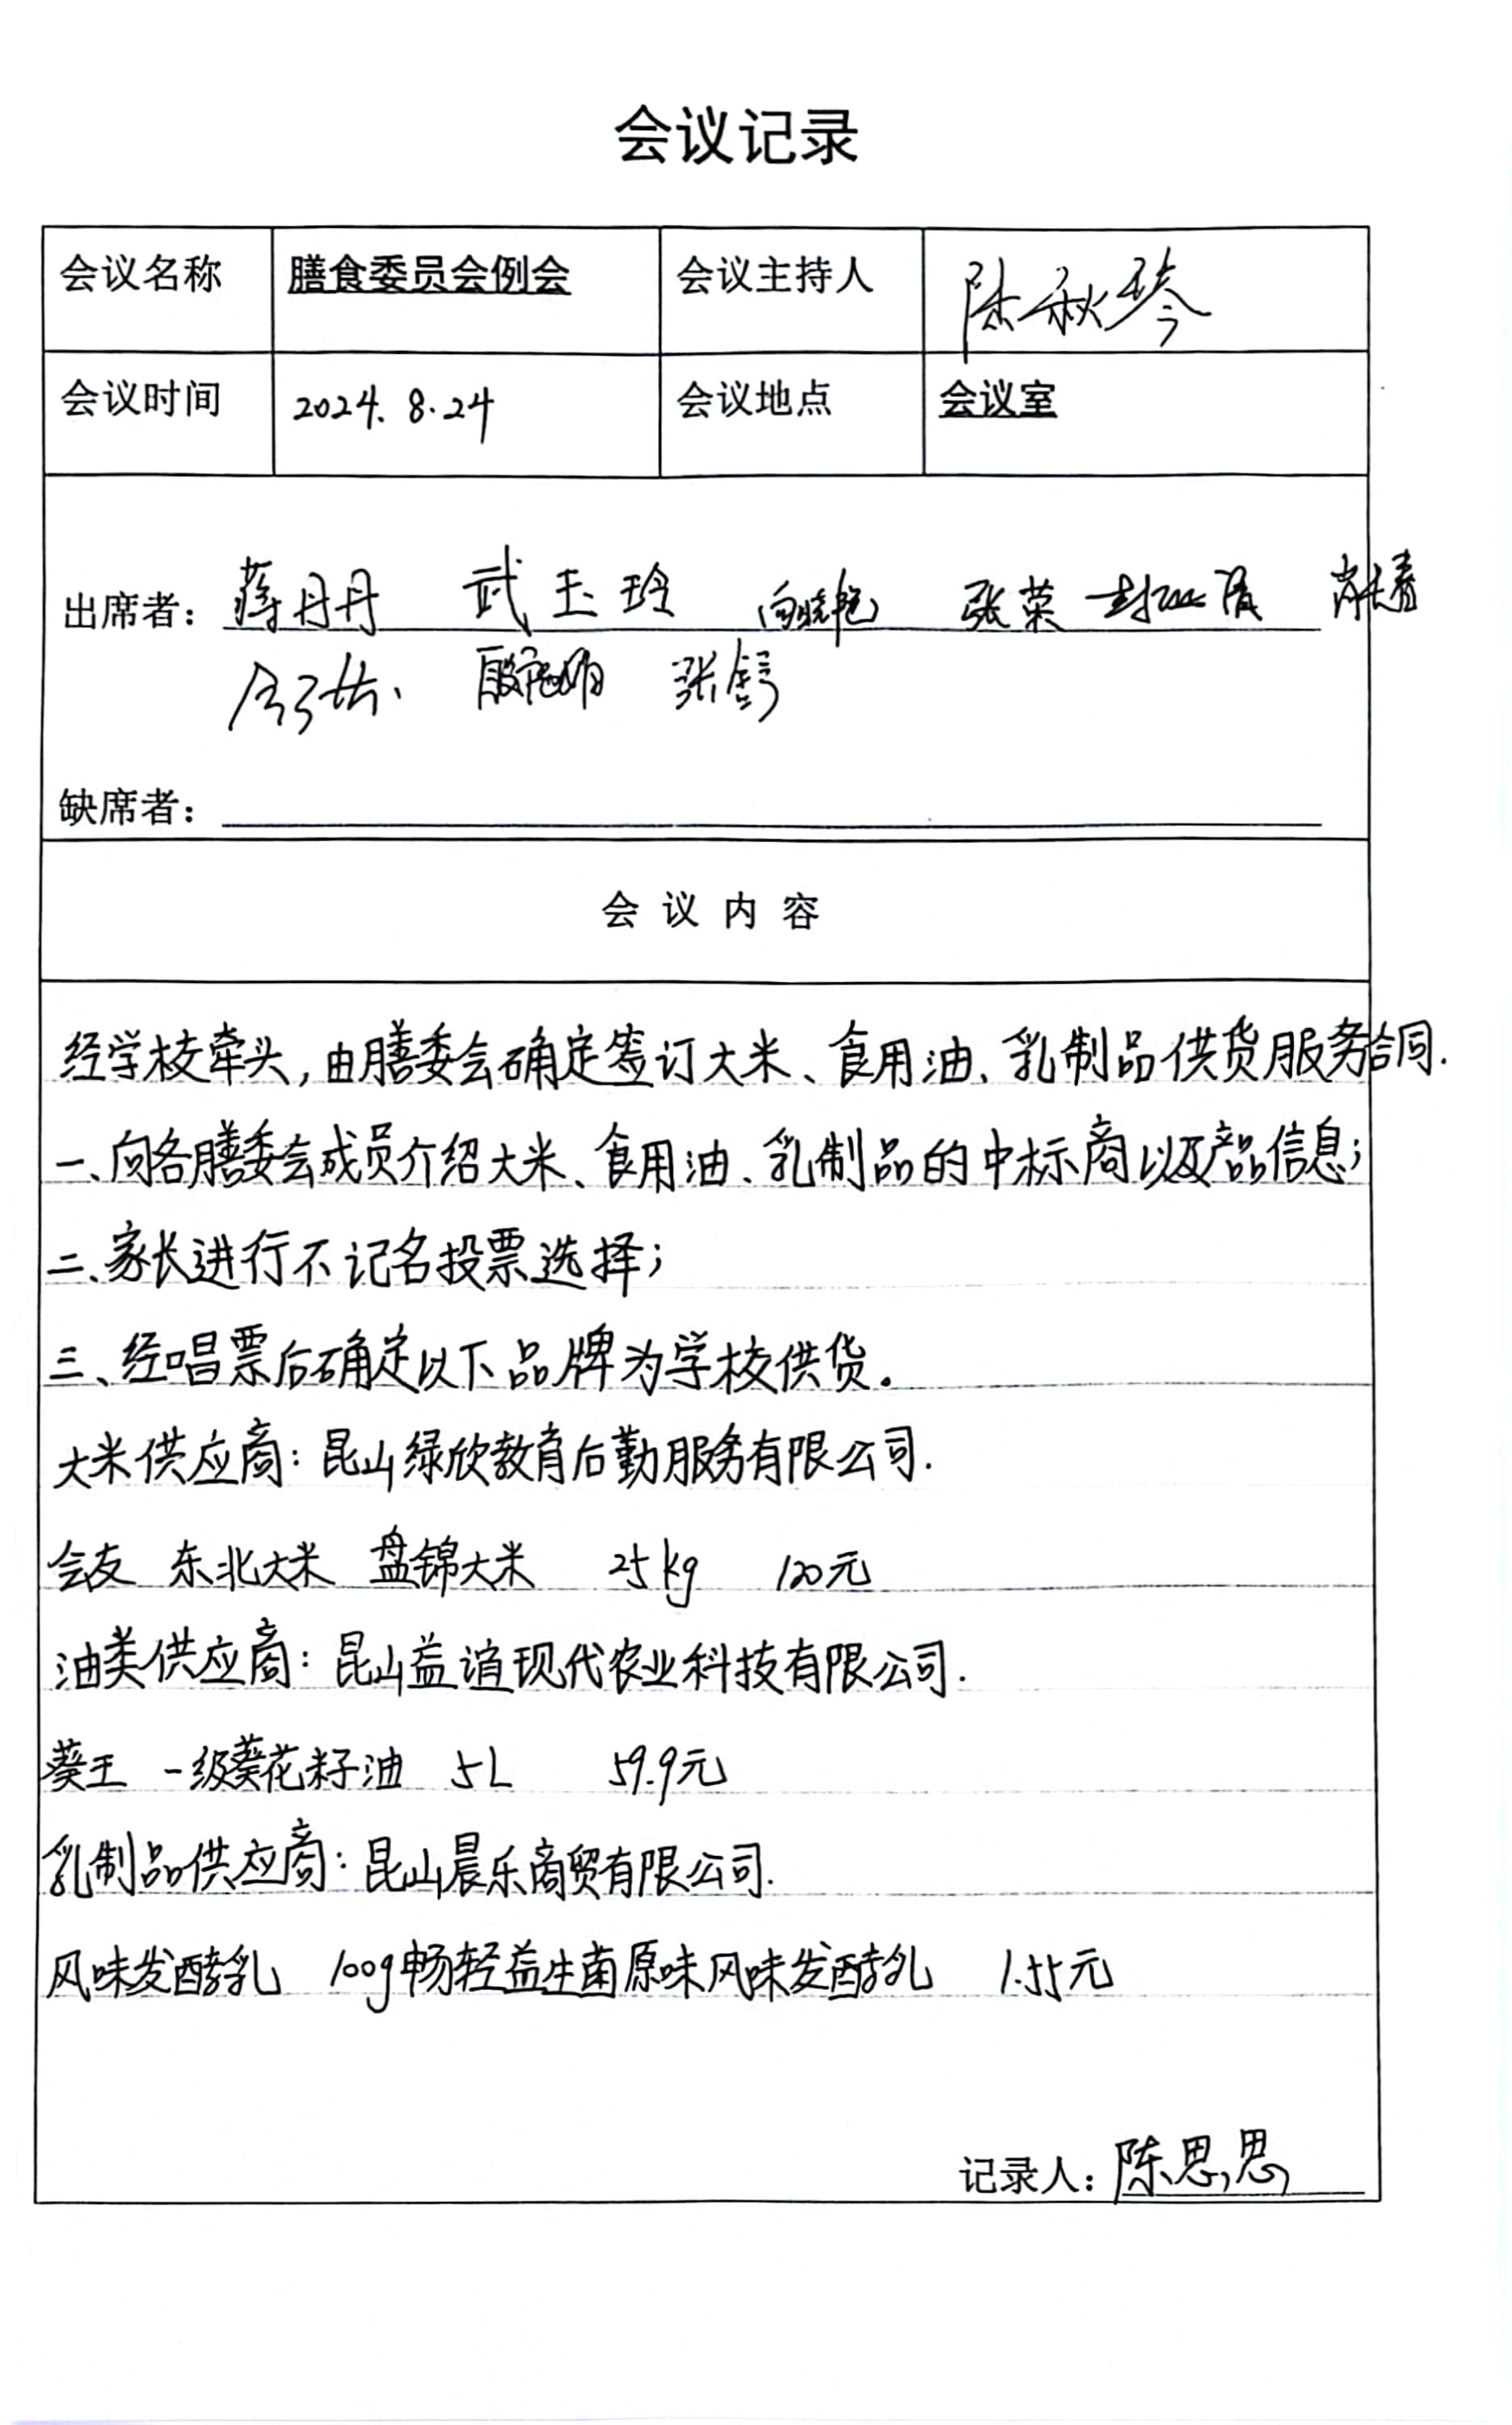 会议记录
会议名称 膳食委员会例会 会议主持人 陈秋琴
会议时间 2024.8.24 会议地点 会议室
出席者: 蒋丹丹 武玉玲 向晓艳 张荣
张
缺席者:
会议内容
经学校牵头,由膳委会确定签订大米、食用油、乳制品供货服务合同.
一、向各膳委会成员介绍大米、食用油、乳制品的中标商以及产品信息;
二、家长进行不记名投票选择;
三、经唱票后确定以下品牌为学校供货。
大米供应商:昆山绿欣教育后勤服务有限公司.
会友 东北大米 盘锦大米 25kg 120元
油类供应商:昆山益谊现代农业科技有限公司.
葵王 一级葵花籽油 5L 59.9元
乳制品供应商:昆山晨乐商贸有限公司.
风味发酵乳 100g畅轻益生菌原味风味发酵乳 1.55元
记录人:陈思思